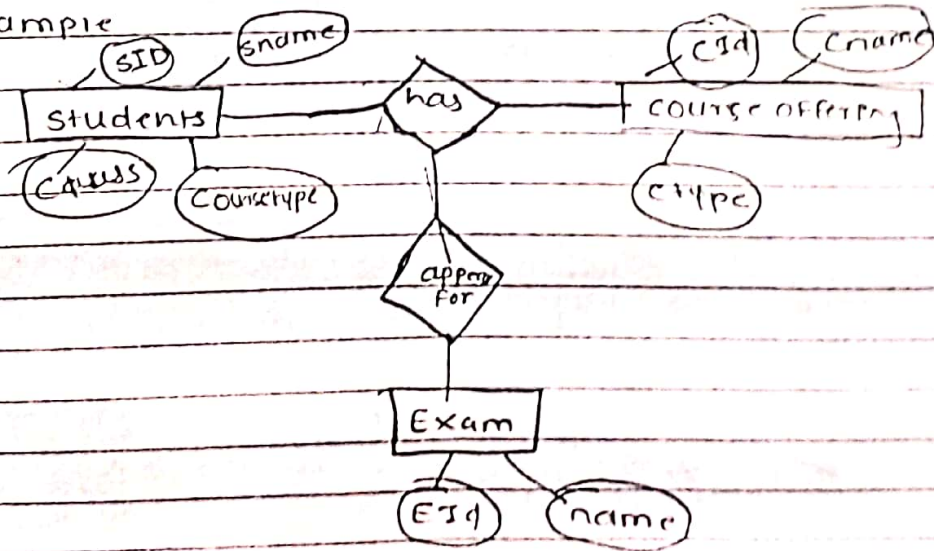 ample
SID sname CId Cname
Students has course offering
Coursetype ctype
For
Exam
EId name